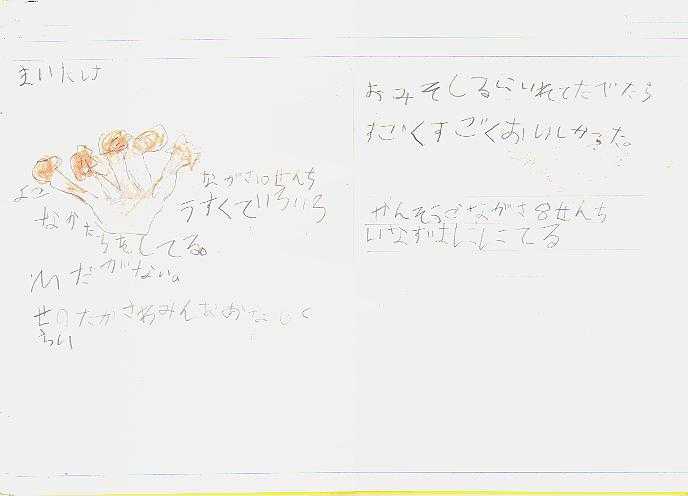 まいたけ
ながさ10せんち
うすくていろいろ
なかたちをしてる。
えだがない。
せのたかさわみんなおなじく
らい
おみそしるにいれてたべたら
すごくすごくおいしかった。
かんそうごながさ8せんち
いなずまににてる